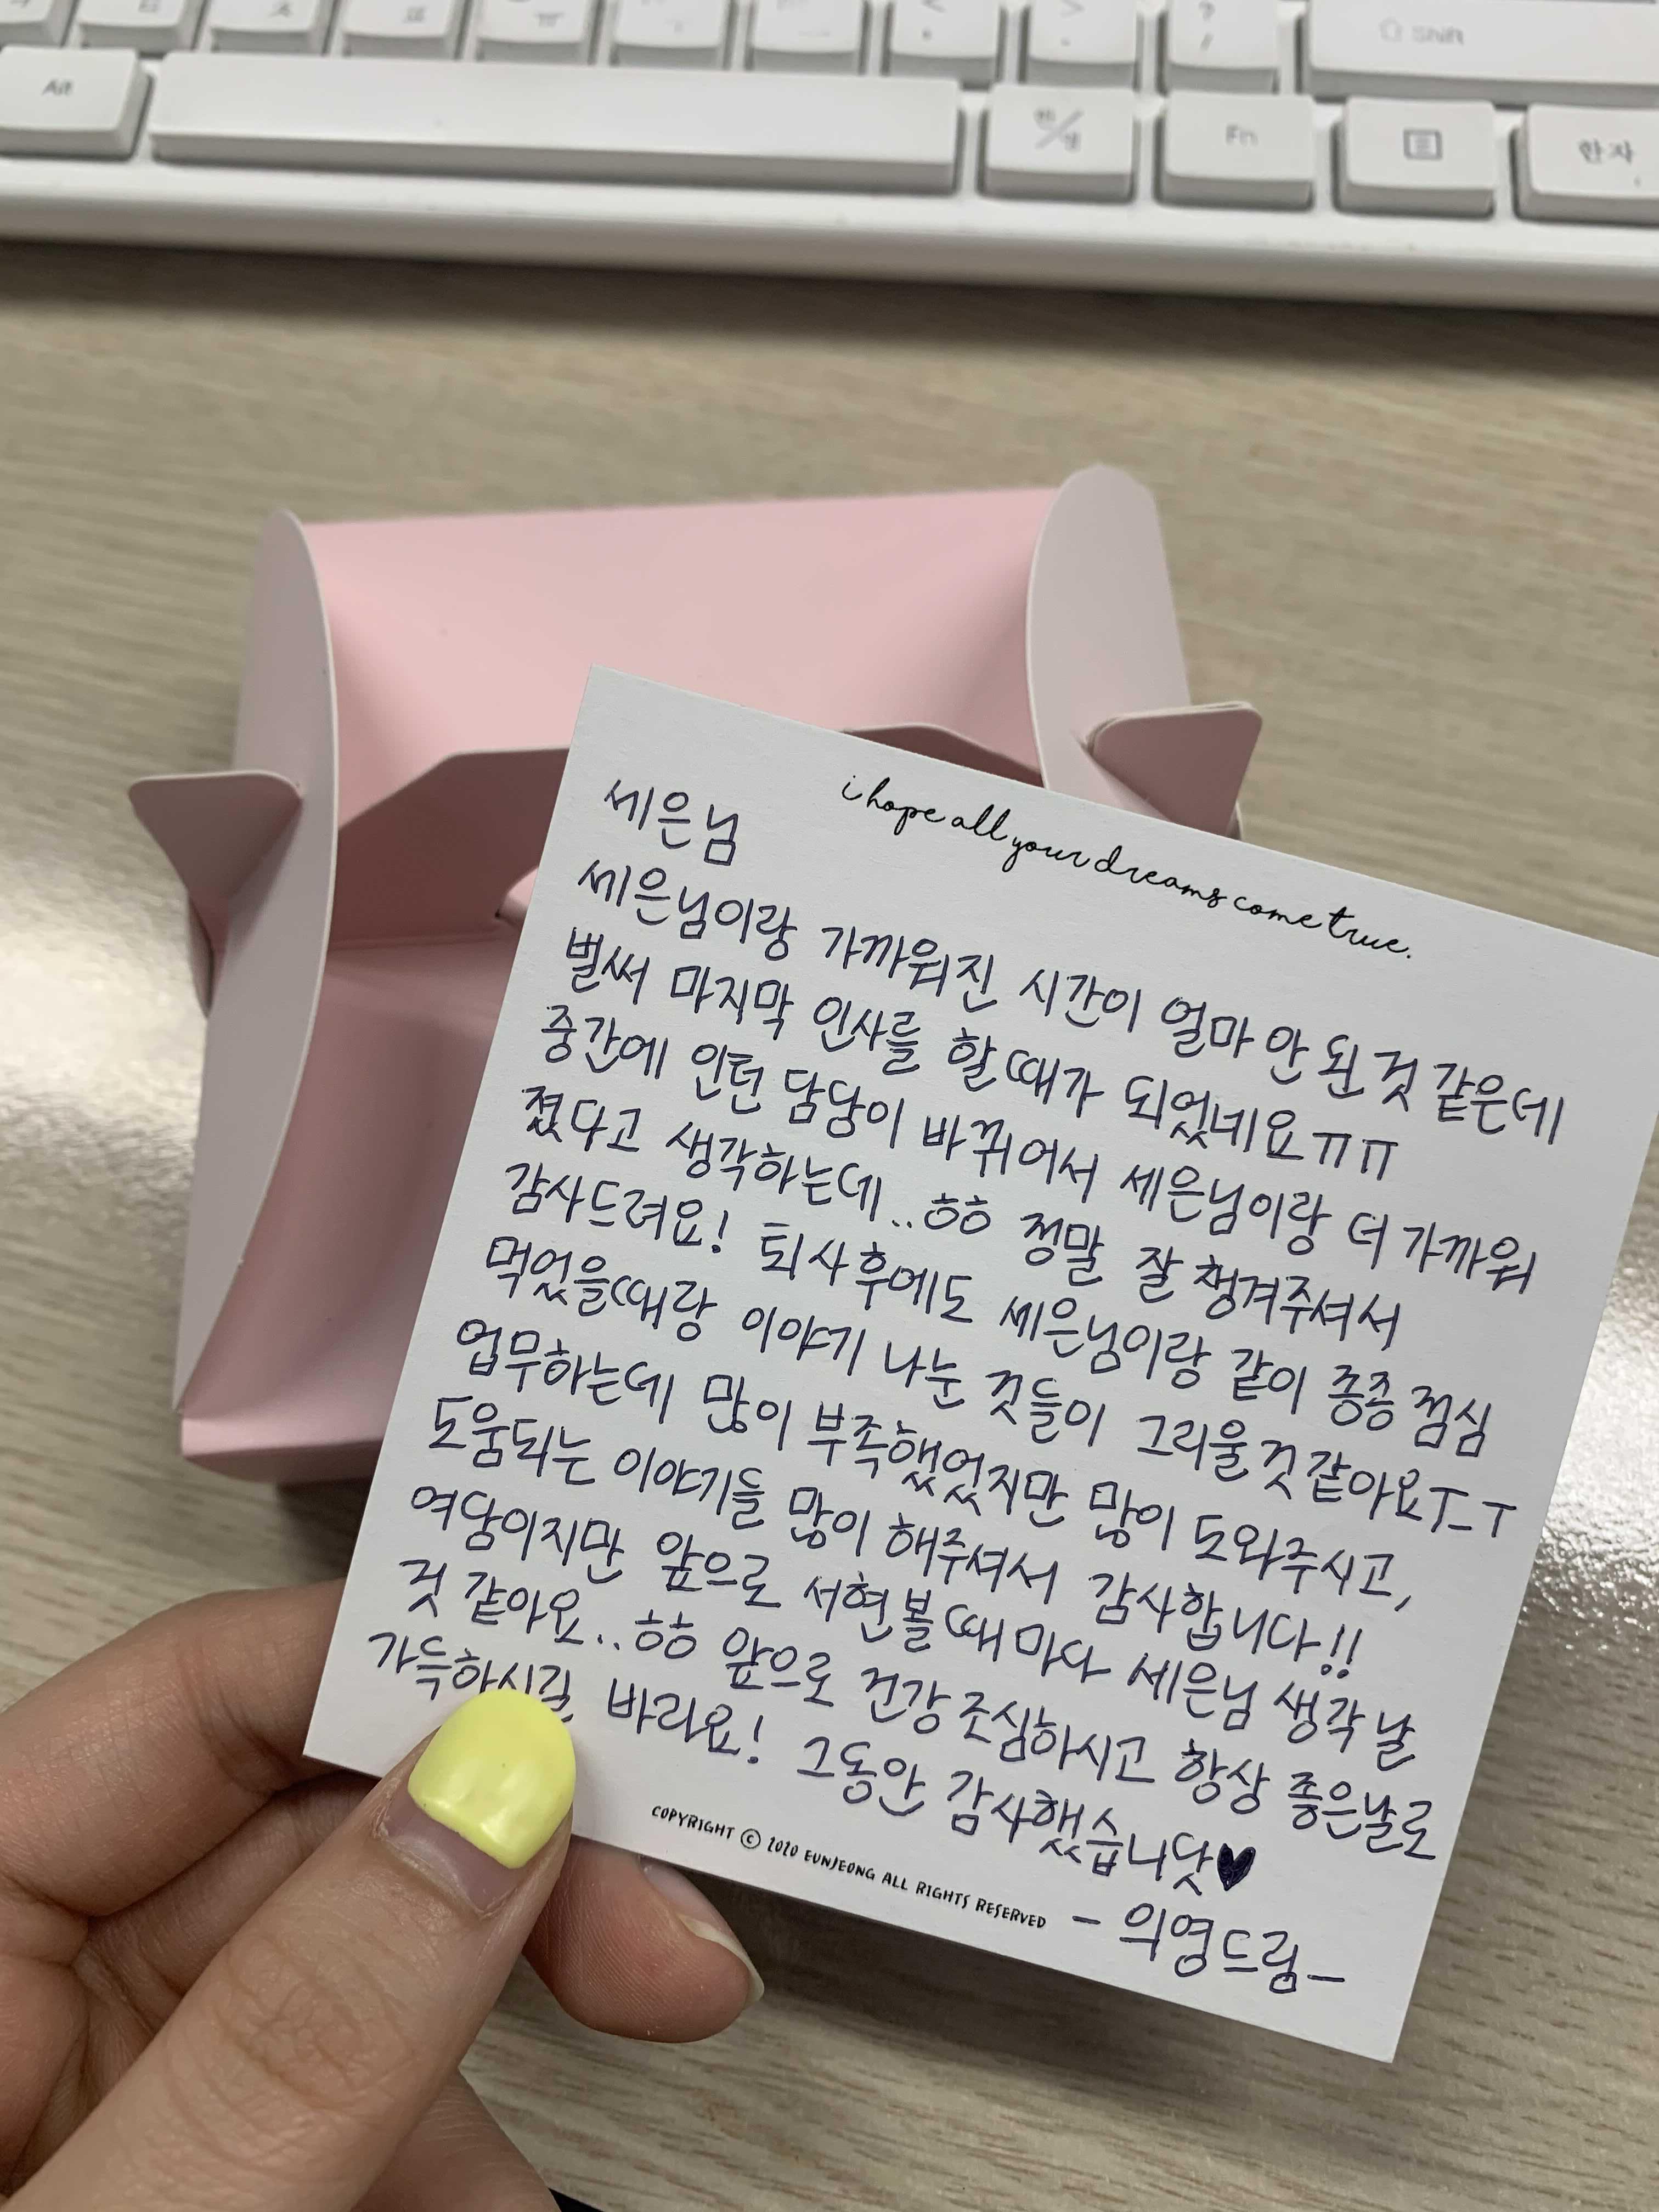 Alt
한/영
Fn
한자
Shift
i hope all your dreams come true.
세은님
세은님이랑 가까워진 시간이 얼마 안 된 것 같은데
벌써 마지막 인사를 할때가 되었네요ㅠㅠ
중간에 인턴 담당이 바뀌어서 세은님이랑 더 가까워
졌다고 생각하는데..ㅎㅎ 정말 잘 챙겨주셔서
감사드려요! 퇴사후에도 세은님이랑 같이 종종 점심
먹었을때랑 이야기 나눈 것들이 그리울것같아요T_T
업무하는데 많이 부족했었지만 많이 도와주시고,
도움되는 이야기들 많이 해주셔서 감사합니다!!
여담이지만 앞으로 서현볼때마다 세은님 생각 날
것 같아요..ㅎㅎ 앞으로 건강조심하시고 항상 좋은날로
가득하시길 바라요! 그동안 감사했습니닷♥
- 의영드림-
COPYRIGHT © 2020 EUNJEONG ALL RIGHTS RESERVED